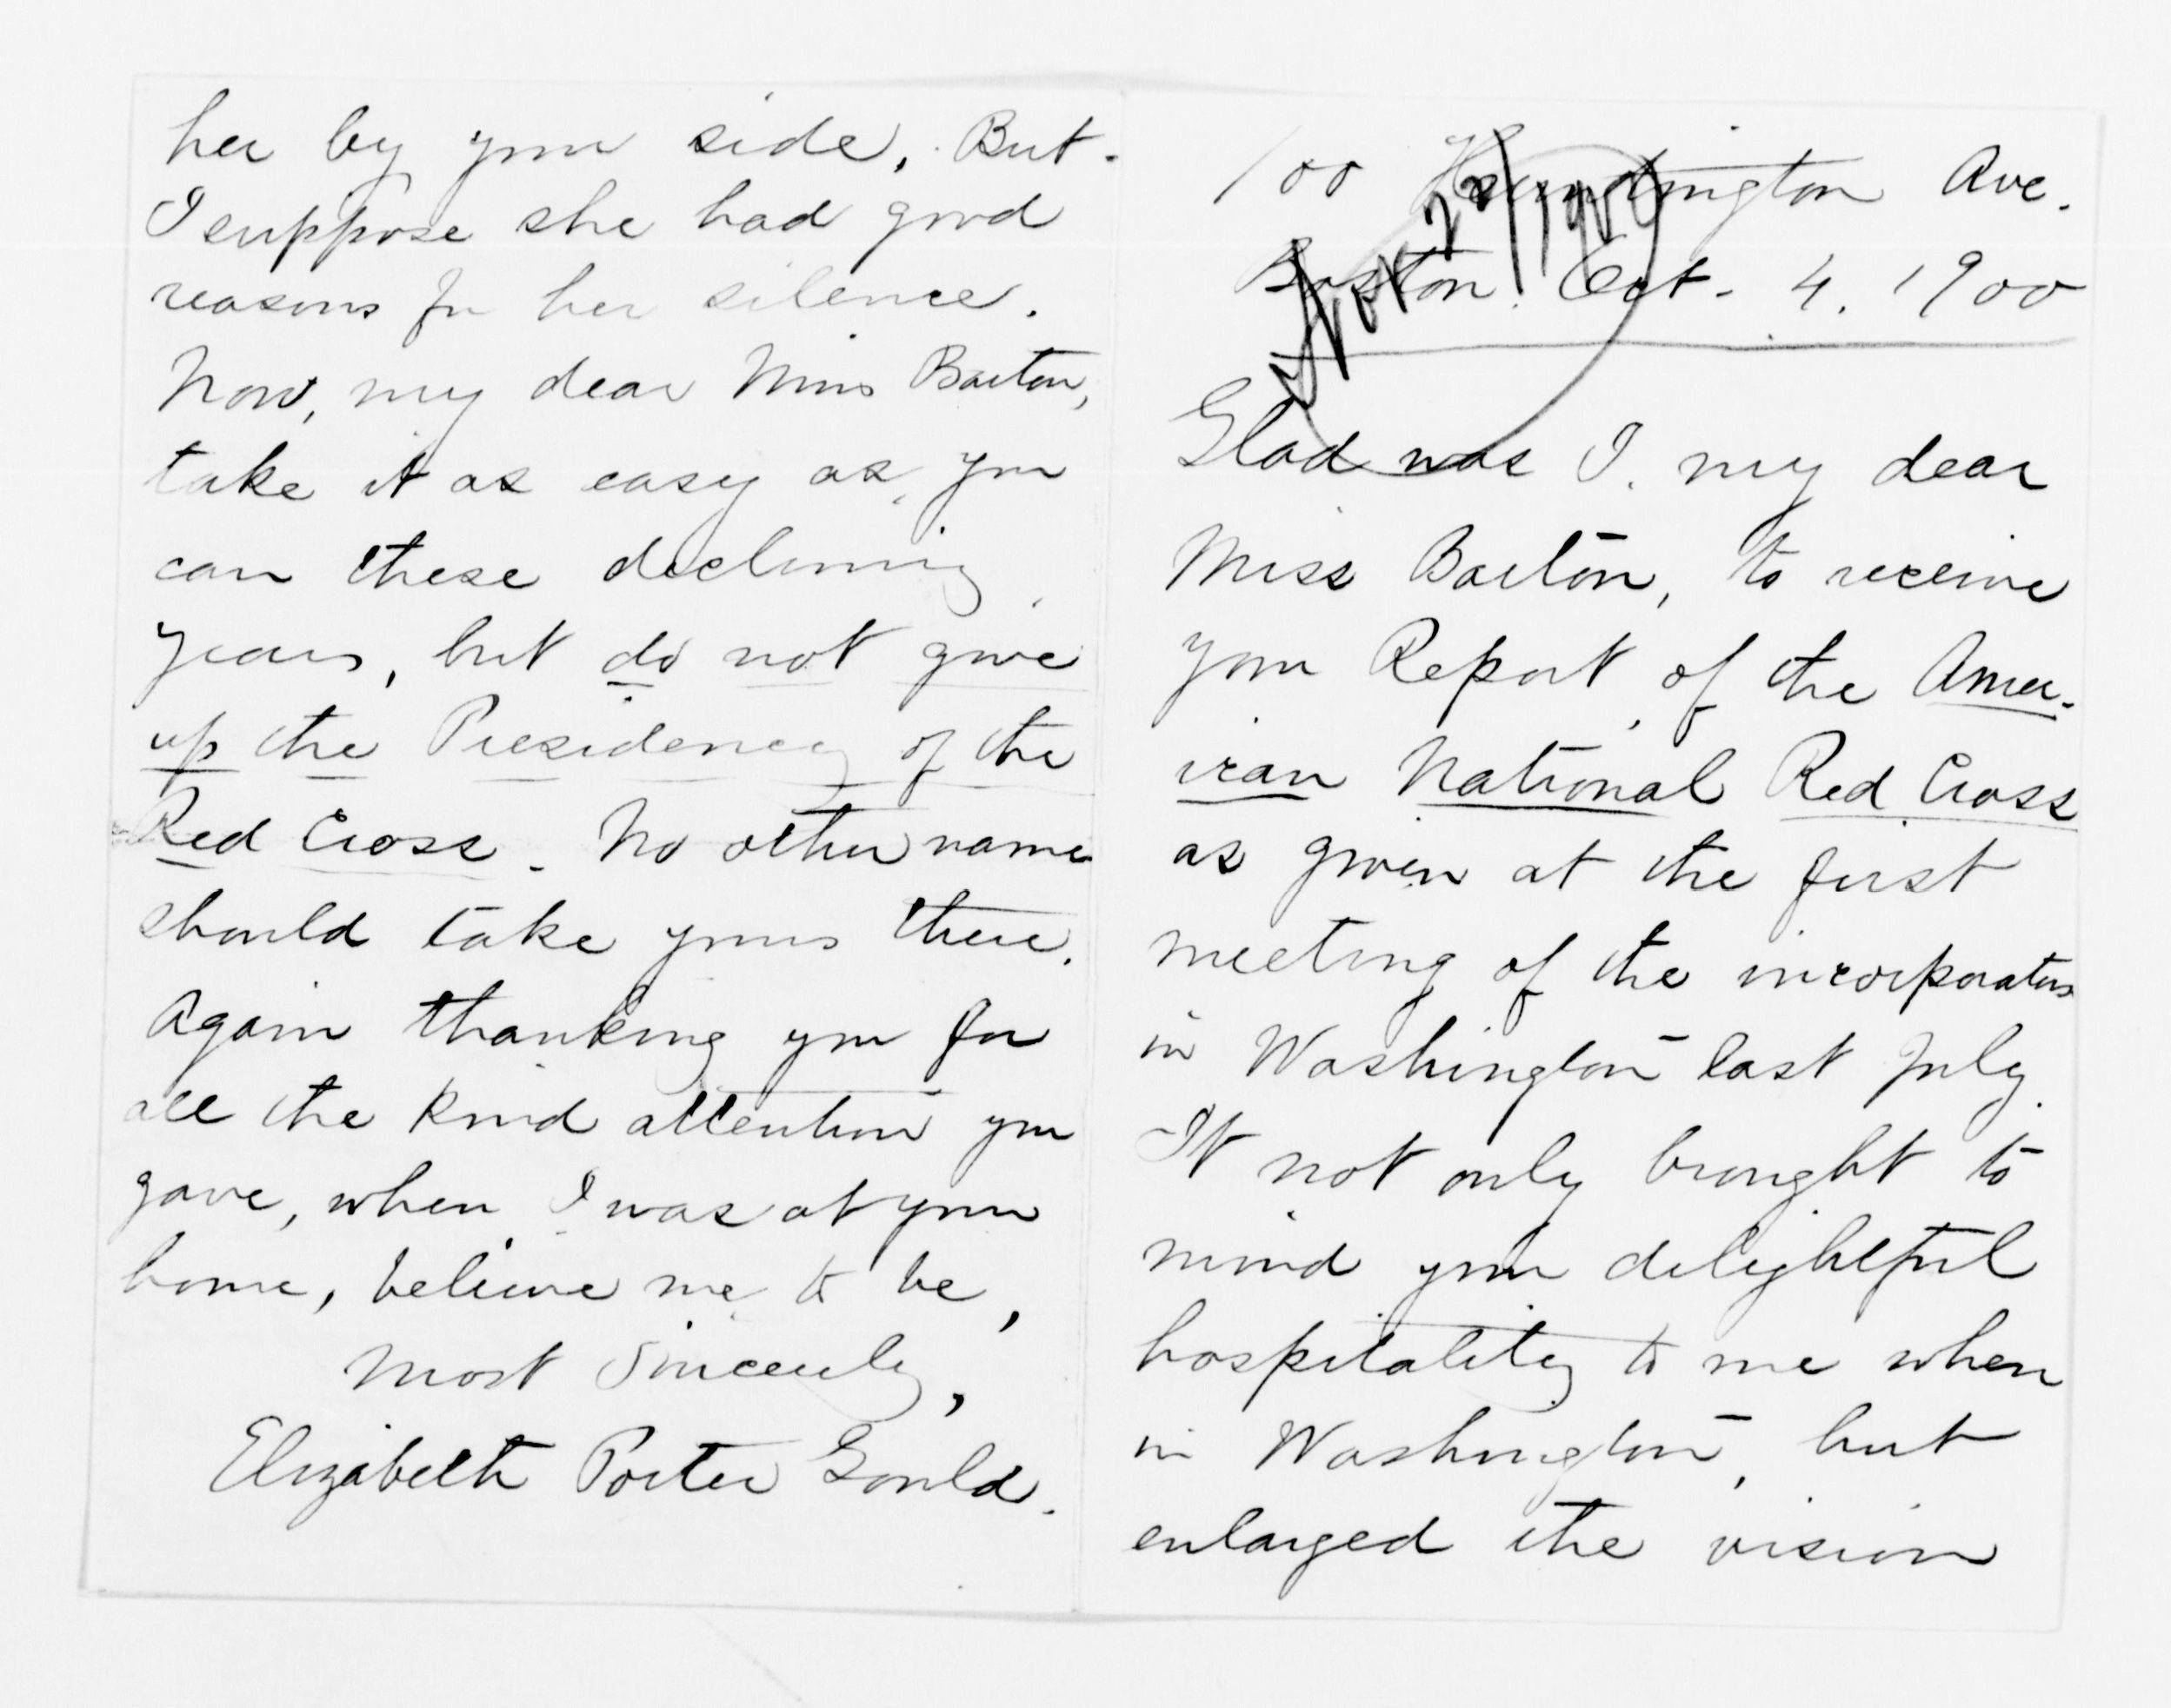 her by your side. But
I suppose she had good
reasons for her silence.
Now, my dear Miss Barton,
take it as easy as you
can these declining
years, but do not give
up the Presidency of the
Red Cross. No other name
should take yours there.
Again thanking you for
all the kind attention you
gave, when I was at your
home, believe me to be,
Most Sincerely,
Elizabeth Porter Gould.
100 Huntington Ave.
Boston. Oct. 4. 1900
Glad was I, my dear
Miss Barton, to receive
your Report of the Amer-
ican National Red Cross
as given at the first
meeting of the incorporators
in Washington last July.
It not only brought to
mind your delightful
hospitality to me when
in Washington, but
enlarged the vision